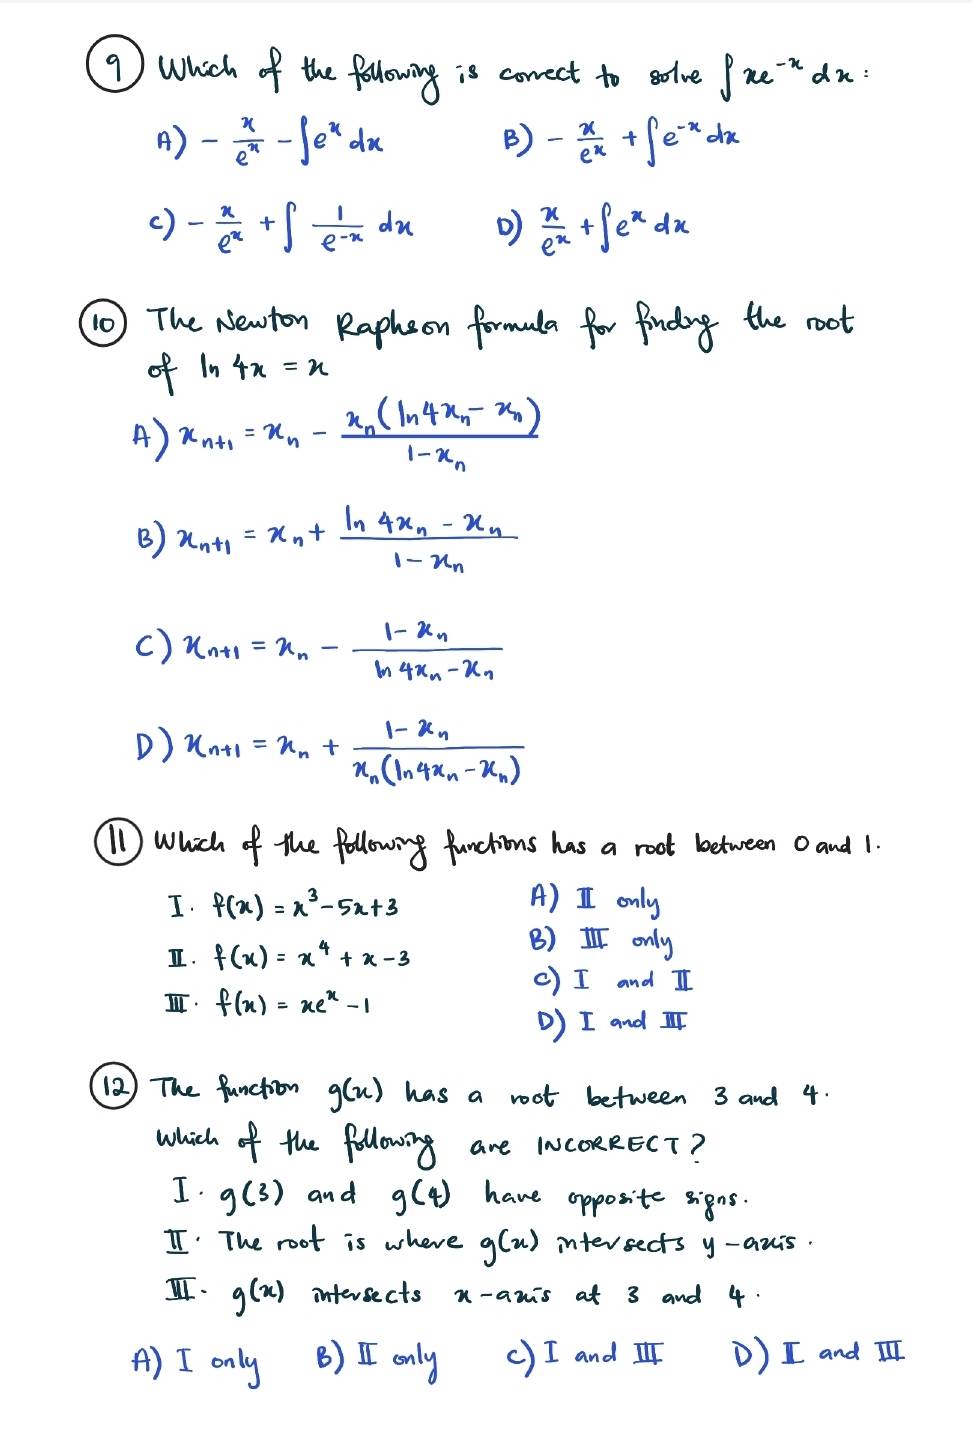 9 Which of the following is correct to solve ∫ xe^{-x} dx :
A) - x/e^x - ∫e^x dx    B) - x/e^x + ∫e^{-x} dx
C) - x/e^x + ∫ 1/e^{-x} dx    D) x/e^x + ∫e^x dx
10 The Newton Raphson formula for finding the root
of ln 4x = x
A) x_{n+1} = x_n - x_n(ln4x_n - x_n)/(1-x_n)
B) x_{n+1} = x_n + (ln 4x_n - x_n)/(1-x_n)
C) x_{n+1} = x_n - (1-x_n)/(ln 4x_n - x_n)
D) x_{n+1} = x_n + (1-x_n)/(x_n(ln4x_n - x_n))
11 Which of the following functions has a root between 0 and 1.
I. f(x) = x^3-5x+3    A) II only
II. f(x) = x^4 + x -3    B) III only
III. f(x) = xe^x -1    C) I and II
D) I and III
12 The function g(x) has a root between 3 and 4.
Which of the following are INCORRECT?
I. g(3) and g(4) have opposite signs.
II. The root is where g(x) intersects y-axis.
III. g(x) intersects x-axis at 3 and 4.
A) I only    B) II only    C) I and III    D) II and III